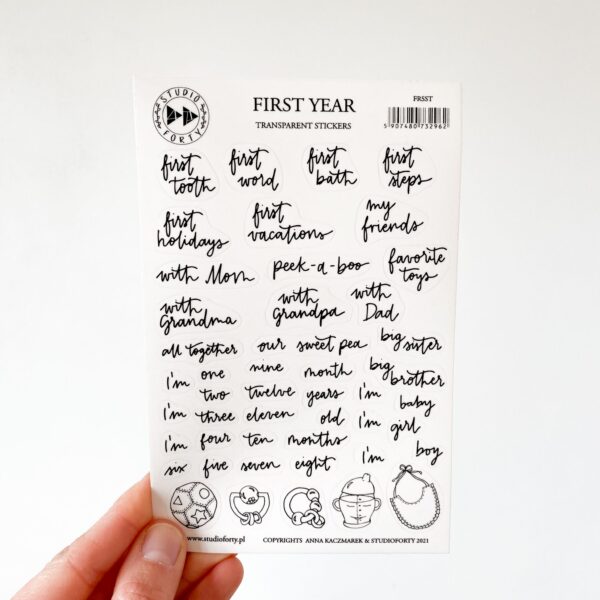 STUDIO FORTY
FIRST YEAR
TRANSPARENT STICKERS
FRSST
5 907480 732962
first tooth
first word
first bath
first steps
first holidays
first vacations
my friends
with Mom
peek-a-boo
favorite toys
with Grandma
with Grandpa
with Dad
all together
our sweet pea
big sister
I'm one nine month
big brother
two twelve years
I'm baby
I'm three eleven old
I'm girl
I'm four ten months
I'm boy
six five seven eight
www.studioforty.pl
COPYRIGHTS ANNA KACZMAREK & STUDIOFORTY 2021